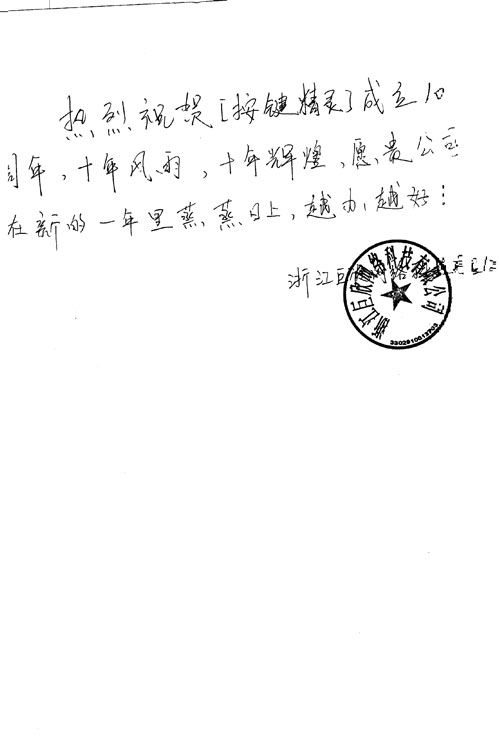 热烈祝贺[按键精灵]成立10
周年，十年风雨，十年辉煌，愿贵公司
在新的一年里蒸蒸日上，越办越好！
浙江巨
浙江巨欣网络科技有限公司
3302910013703